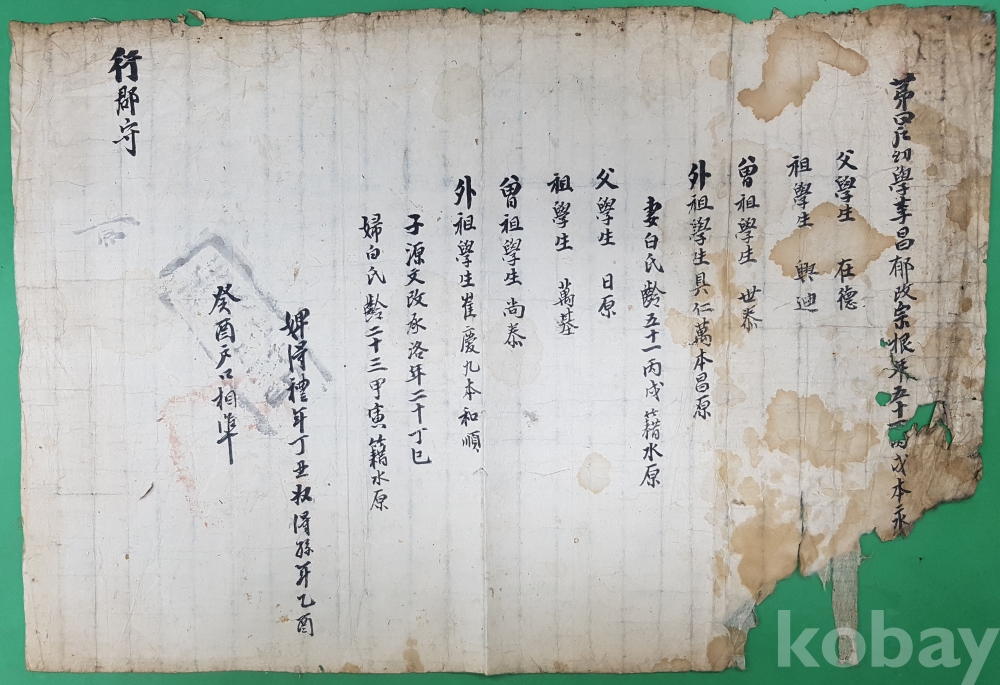 第四戶幼學李昌郁改宗恨年五十一丙戌本永
父學生 在德
祖學生 興迪
曾祖學生 世泰
外祖學生具仁萬本昌原
妻白氏齡五十一丙戌籍水原
父學生 日原
祖學生 萬基
曾祖學生尚泰
外祖學生崔慶九本和順
子源文改承洛年二十丁巳
婦白氏齡二十三甲寅籍水原
婢得禮年丁丑奴得孫年乙酉
癸酉戶口相準
行郡守
kobay